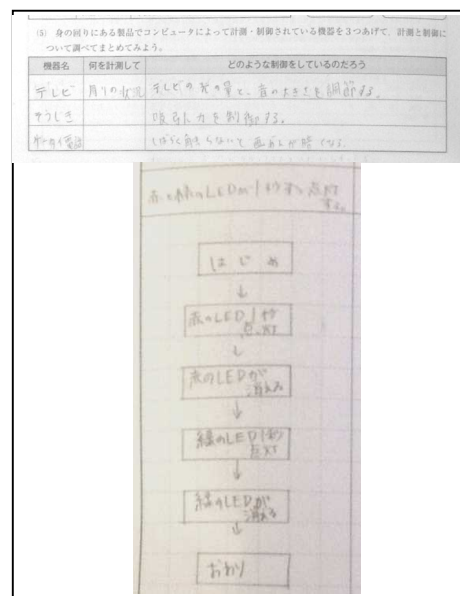 (5) 身の回りにある製品でコンピュータによって計測・制御されている機器を3つあげて、計測と制御に
ついて調べてまとめてみよう。
機器名 何を計測して どのような制御をしているのだろう
テレビ 周りの状況 テレビの光の量と、音の大きさを調節する。
そうじき 吸引力を制御する。
しばらく触らないと画面が暗くなる。
赤と緑のLEDが1秒ずつ点灯
する。
はじめ
↓
赤のLED1秒
点灯
↓
赤のLEDが
消える
↓
緑のLED1秒
点灯
↓
緑のLEDが
消える
↓
おわり